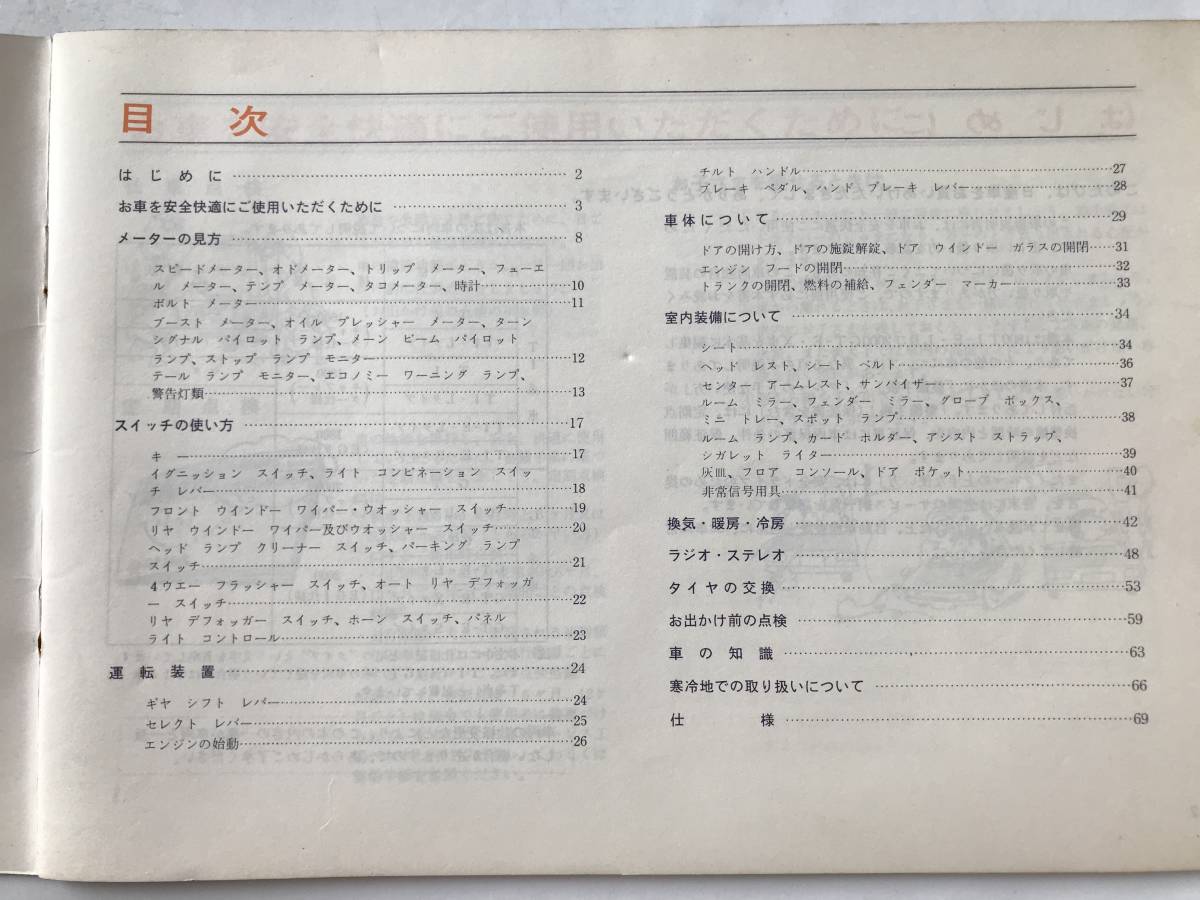 目次
はじめに……2
お車を安全快適にご使用いただくために……3
メーターの見方……8
スピードメーター、オドメーター、トリップ メーター、フューエ
ル メーター、テンプ メーター、タコメーター、時計……10
ボルト メーター……11
ブースト メーター、オイル プレッシャー メーター、ターン
シグナル パイロット ランプ、メーン ビーム パイロット
ランプ、ストップ ランプ モニター……12
テール ランプ モニター、エコノミー ワーニング ランプ、
警告灯類……13
スイッチの使い方……17
キー……17
イグニッション スイッチ、ライト コンビネーション スイッ
チ レバー……18
フロント ウインドー ワイパー・ウオッシャー スイッチ……19
リヤ ウインドー ワイパー及びウオッシャー スイッチ……20
ヘッド ランプ クリーナー スイッチ、パーキング ランプ
スイッチ……21
4ウエー フラッシャー スイッチ、オート リヤ デフォッガ
ー スイッチ……22
リヤ デフォッガー スイッチ、ホーン スイッチ、パネル
ライト コントロール……23
運転装置……24
ギヤ シフト レバー……24
セレクト レバー……25
エンジンの始動……26
チルト ハンドル……27
ブレーキ ペダル、ハンド ブレーキ レバー……28
車体について……29
ドアの開け方、ドアの施錠解錠、ドア ウインドー ガラスの開閉……31
エンジン フードの開閉……32
トランクの開閉、燃料の補給、フェンダー マーカー……33
室内装備について……34
シート……34
ヘッド レスト、シート ベルト……36
センター アームレスト、サンバイザー……37
ルーム ミラー、フェンダー ミラー、グローブ ボックス、
ミニ トレー、スポット ランプ……38
ルーム ランプ、カード ホルダー、アシスト ストラップ、
シガレット ライター……39
灰皿、フロア コンソール、ドア ポケット……40
非常信号用具……41
換気・暖房・冷房……42
ラジオ・ステレオ……48
タイヤの交換……53
お出かけ前の点検……59
車の知識……63
寒冷地での取り扱いについて……66
仕様……69